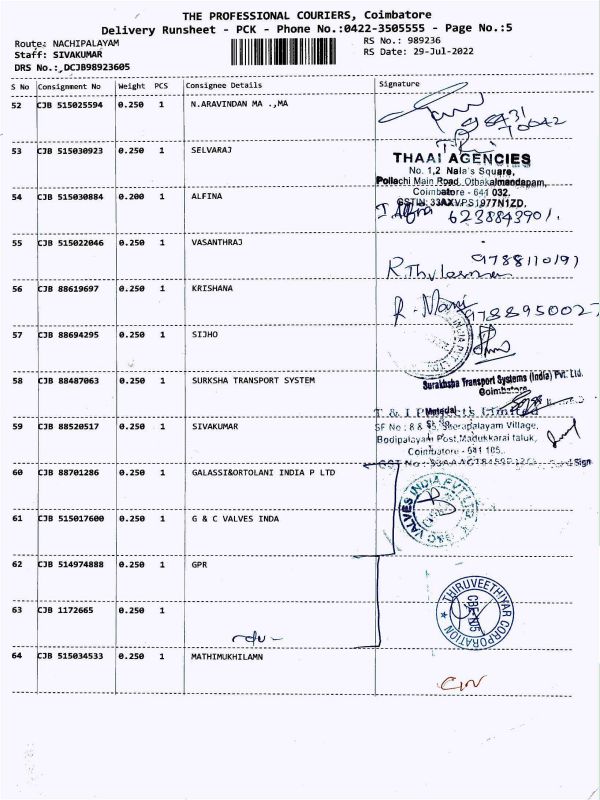 THE PROFESSIONAL COURIERS, Coimbatore
Delivery Runsheet - PCK - Phone No.:0422-3505555 - Page No.:5
Route: NACHIPALAYAM
Staff: SIVAKUMAR
DRS No.:,DCJB98923605
RS No.: 989236
RS Date: 29-Jul-2022
S No Consignment No Weight PCS Consignee Details Signature
52 CJB 515025594 0.250 1 N.ARAVINDAN MA .,MA
53 CJB 515030923 0.250 1 SELVARAJ
THAAI AGENCIES
No. 1,2 Nala's Square,
Pollachi Main Road, Othakalmandapam,
Coimbatore - 641 032.
GSTIN: 33AXVPS1977N1ZD,
54 CJB 515030884 0.200 1 ALFINA
6238843901.
55 CJB 515022046 0.250 1 VASANTHRAJ
9788110191
56 CJB 88619697 0.250 1 KRISHANA
R. Mani
57 CJB 88694295 0.250 1 SIJHO
58 CJB 88487063 0.250 1 SURKSHA TRANSPORT SYSTEM
Surakhsha Transport Systems (India) Pvt. Ltd.
Coimbatore
59 CJB 88520517 0.250 1 SIVAKUMAR
T & I Limited
Bodipalayam Post, Madukkarai taluk,
Coimbatore - 641 105.
60 CJB 88701286 0.250 1 GALASSI&ORTOLANI INDIA P LTD
61 CJB 515017600 0.250 1 G & C VALVES INDA
G&C VALVES INDIA PVT LTD
62 CJB 514974888 0.250 1 GPR
63 CJB 1172665 0.250 1
THIRUVEETHIYAR CORPORATION
64 CJB 515034533 0.250 1 MATHIMUKHILAMN